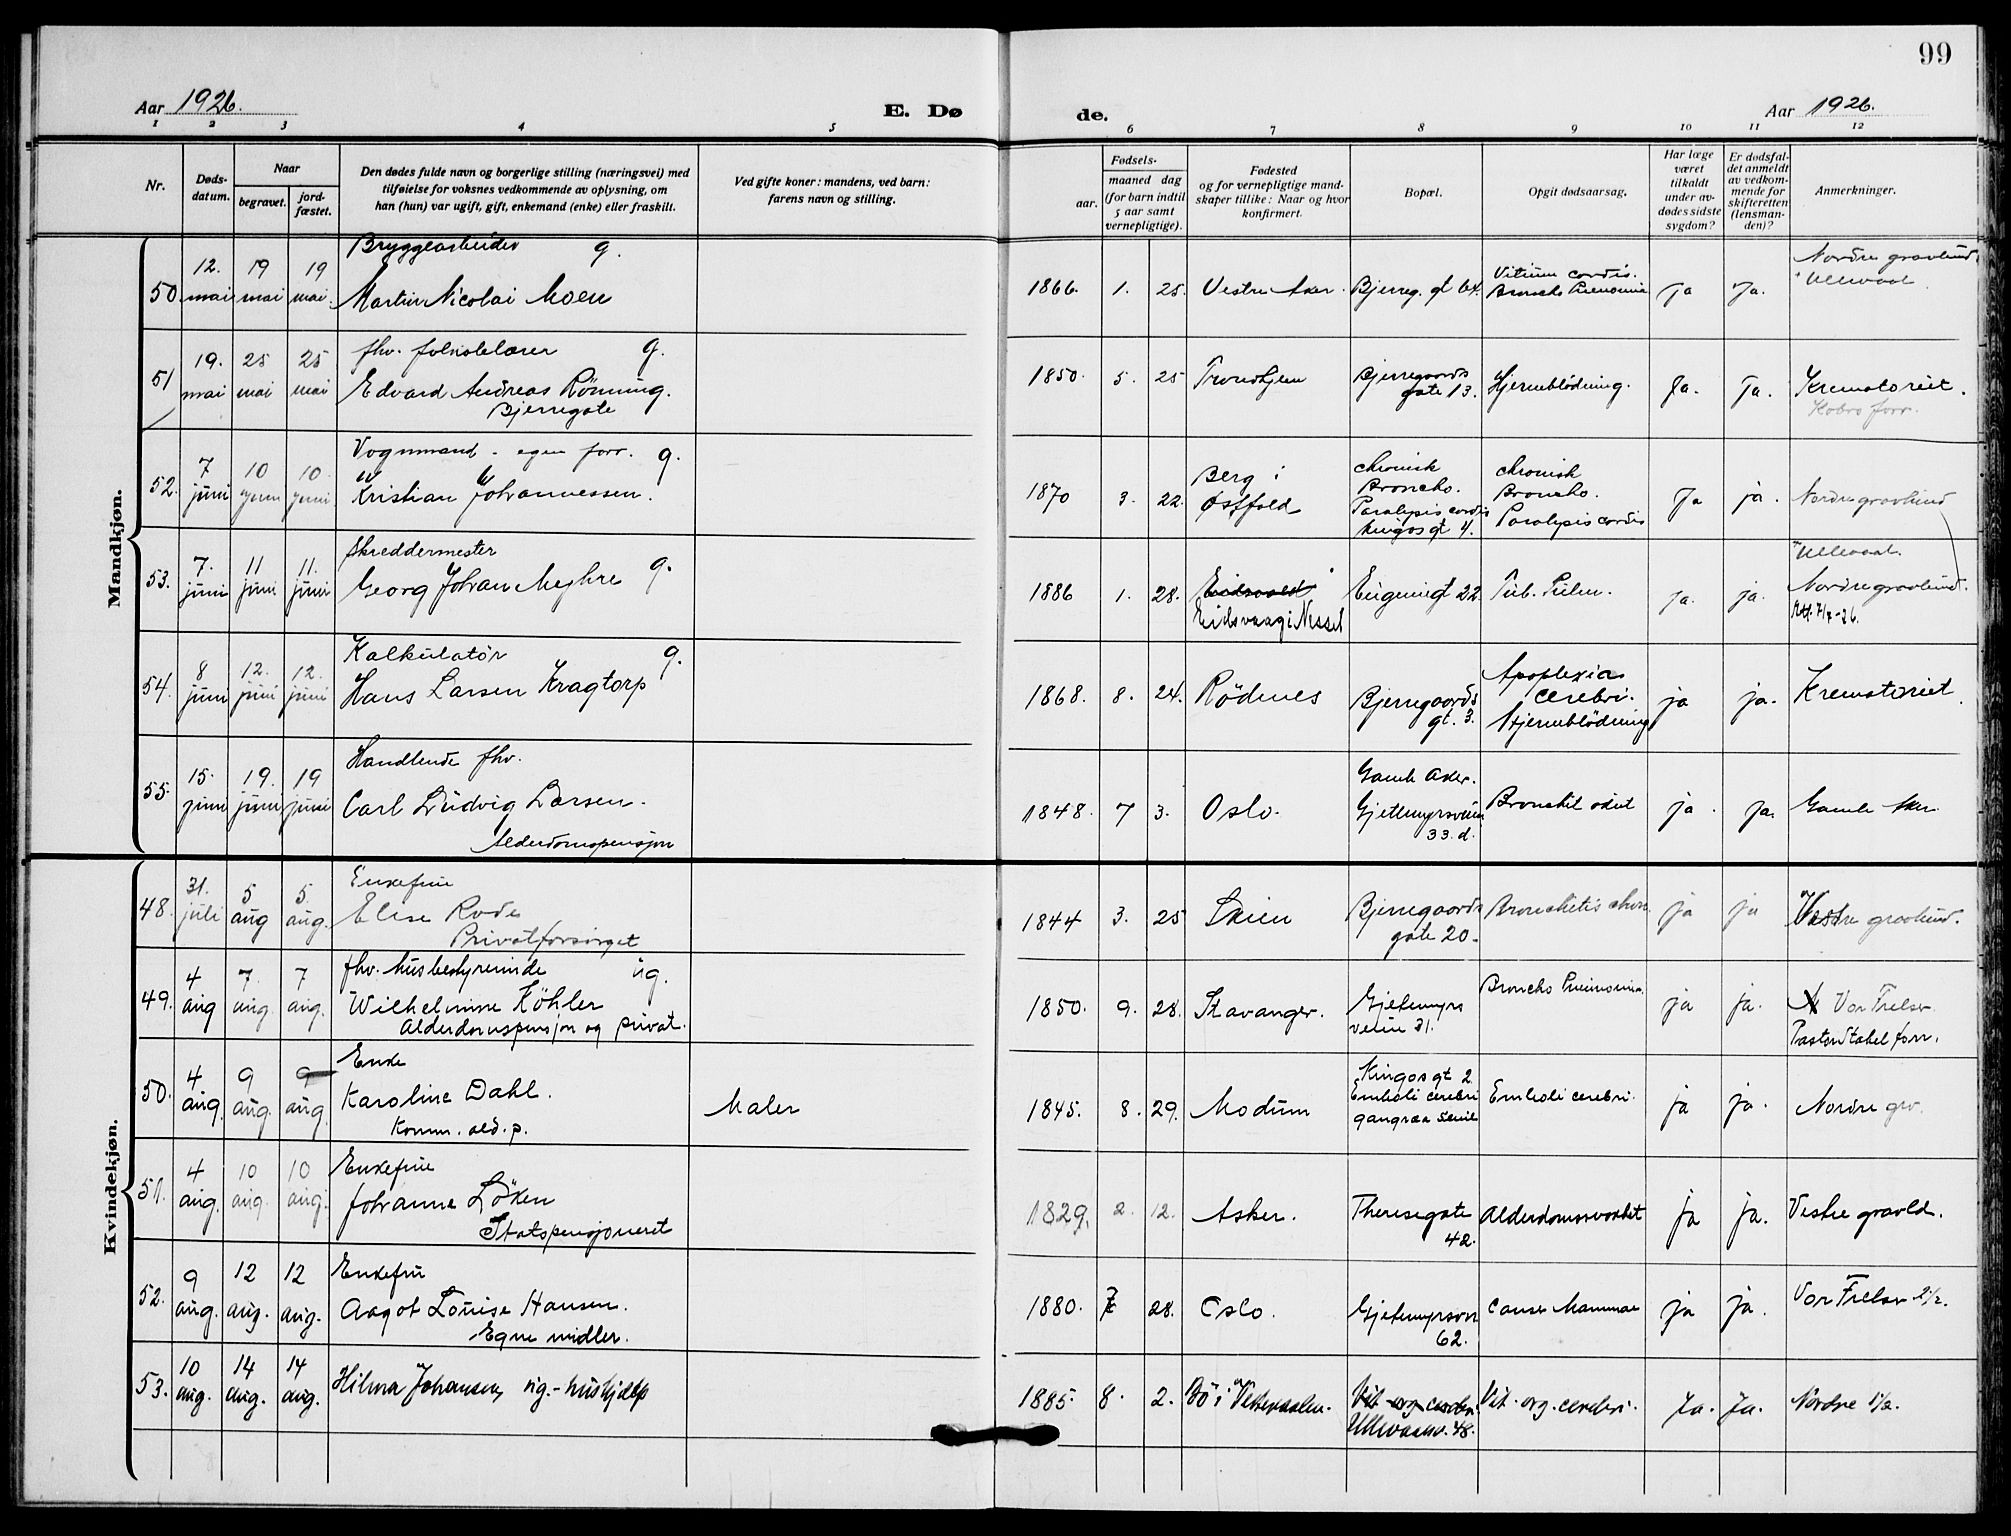 99
Aar 1926.
E. Dø
de.
Aar 1926.
1 2 3 4 5 6 7 8 9 10 11 12
Nr.
Døds-
datum.
Naar
begravet.
jord-
fæstet.
Den dødes fulde navn og borgerlige stilling (næringsvei) med
tilføielse for voksnes vedkommende av oplysning, om
han (hun) var ugift, gift, enkemand (enke) eller fraskilt.
Ved gifte koner: mandens, ved barn:
farens navn og stilling.
Fødsels-
aar.
maaned dag
(for barn indtil
5 aar samt
vernepligtige).
Fødested
og for vernepligtige mand-
skaper tillike: Naar og hvor
konfirmert.
Bopæl.
Opgit dødsaarsag.
Har læge
været
tilkaldt
under av-
dødes sidste
sygdom?
Er dødsfal-
det anmeldt
av vedkom-
mende for
skifteretten
(lensman-
den)?
Anmerkninger.
Mandkjøn.
50. 12. mai 19 mai 19 mai.
Bryggearbeider g.
Martin Nicolai Moen
1866. 1. 25. Vestre Aker. Bjerreg. gt 64.
Vitium cordis.
Broncho Pneumonia
Ja Ja.
Nordre gravlund
Ullevaal
51 19. mai 25 mai 25 mai
fhv. folkelærer g.
Edvard Andreas Rönning.
Bjerregate
1850. 5. 25 Trondhjem
Bjerregaards
gate 13.
Hjerneblödning. Ja. Ja.
Krematoriet.
52. 7 juni 10 juni 10. juni
Vognmand - egen forr. g.
Kristian Johannessen.
1870 3. 22.
Berg i
Østfold
chronisk
Broncho.
Paralysis cordis
Kingos gt 4.
chronisk
Broncho.
Paralysis cordis
Ja ja.
Nordre gravlund
53. 7. juni 11 juni 11. juni
Skreddermester
Georg Johan Meyhre g.
1886 1. 28.
Eidsvold
Eidsvaag i Nesset
Eugenigt 22. Tub. Pulm. Ja. ja.
Ullevaal.
Nordre gravlund.
Att. 7/7-26.
54. 8 juni 12. juni 12. juni
Kalkulatör g.
Hans Larsen Kragtorp
1868. 8. 24. Rödenes
Bjerregaards
gt. 3.
Apoplexia
cerebri.
Hjerneblödning
ja ja.
Krematoriet.
55. 15. juni 19. juni 19 juni
Handlende fhv.
Carl Ludvig Larsen.
Alderdomspensjon
1848. 7 3. Oslo.
Gamle Aker.
Gjetemyrsveien
33. d.
Bronchit ja. ja. Gamle Aker
Kvindekjøn.
48. 31. juli 5 aug 5. aug.
Enkefrue
Elise Rode
Privatforsörget
1844 3. 25 Skien
Bjerregaards
gate 20.
Bronchitis chron. ja ja
Vestre gravlund.
49. 4 aug 7. aug. 7 aug.
fhv. husbestyrerinde ug.
Wilhelmine Köhler
Alderdomspensjon og privat.
1850. 9. 28. Stavanger.
Gjetemyrs
veien 31.
Broncho Pneumonia. ja ja.
Vor Frelser.
Pastor Stabel forr.
50. 4 aug. 9 aug. 9 aug.
Enke
Karoline Dahl.
Komm. ald. p.
Maler
1845. 8. 29. Modum
Kingos gt 2
Emboli cerebri
gangræn senil
Emboli cerebri. ja ja.
Nordre grv.
51. 4 aug. 10 aug. 10 aug.
Enkefrue
Johanne Löken
Statspensjoneret
1829. 2. 12. Asker.
Theresegate
42.
Alderdomssvakhet ja ja.
Vestre gravld.
52. 9 aug. 12 aug. 12 aug.
Enkefru
Aagot Louise Hansen.
Egne midler.
1880. 7 28. Oslo.
Gjetemyrsvn
62.
Cancer Mammae ja ja.
Vor Frelser
53. 10 aug. 14 aug. 14 aug.
Hilma Johansen, ug. - hushjelp
1885. 8. 2. Bö i Vesteraalen.
Vit. org. cerebri.
Ullevaalsv. 48.
Vit. org. cerebri. Ja. Ja.
Nordre